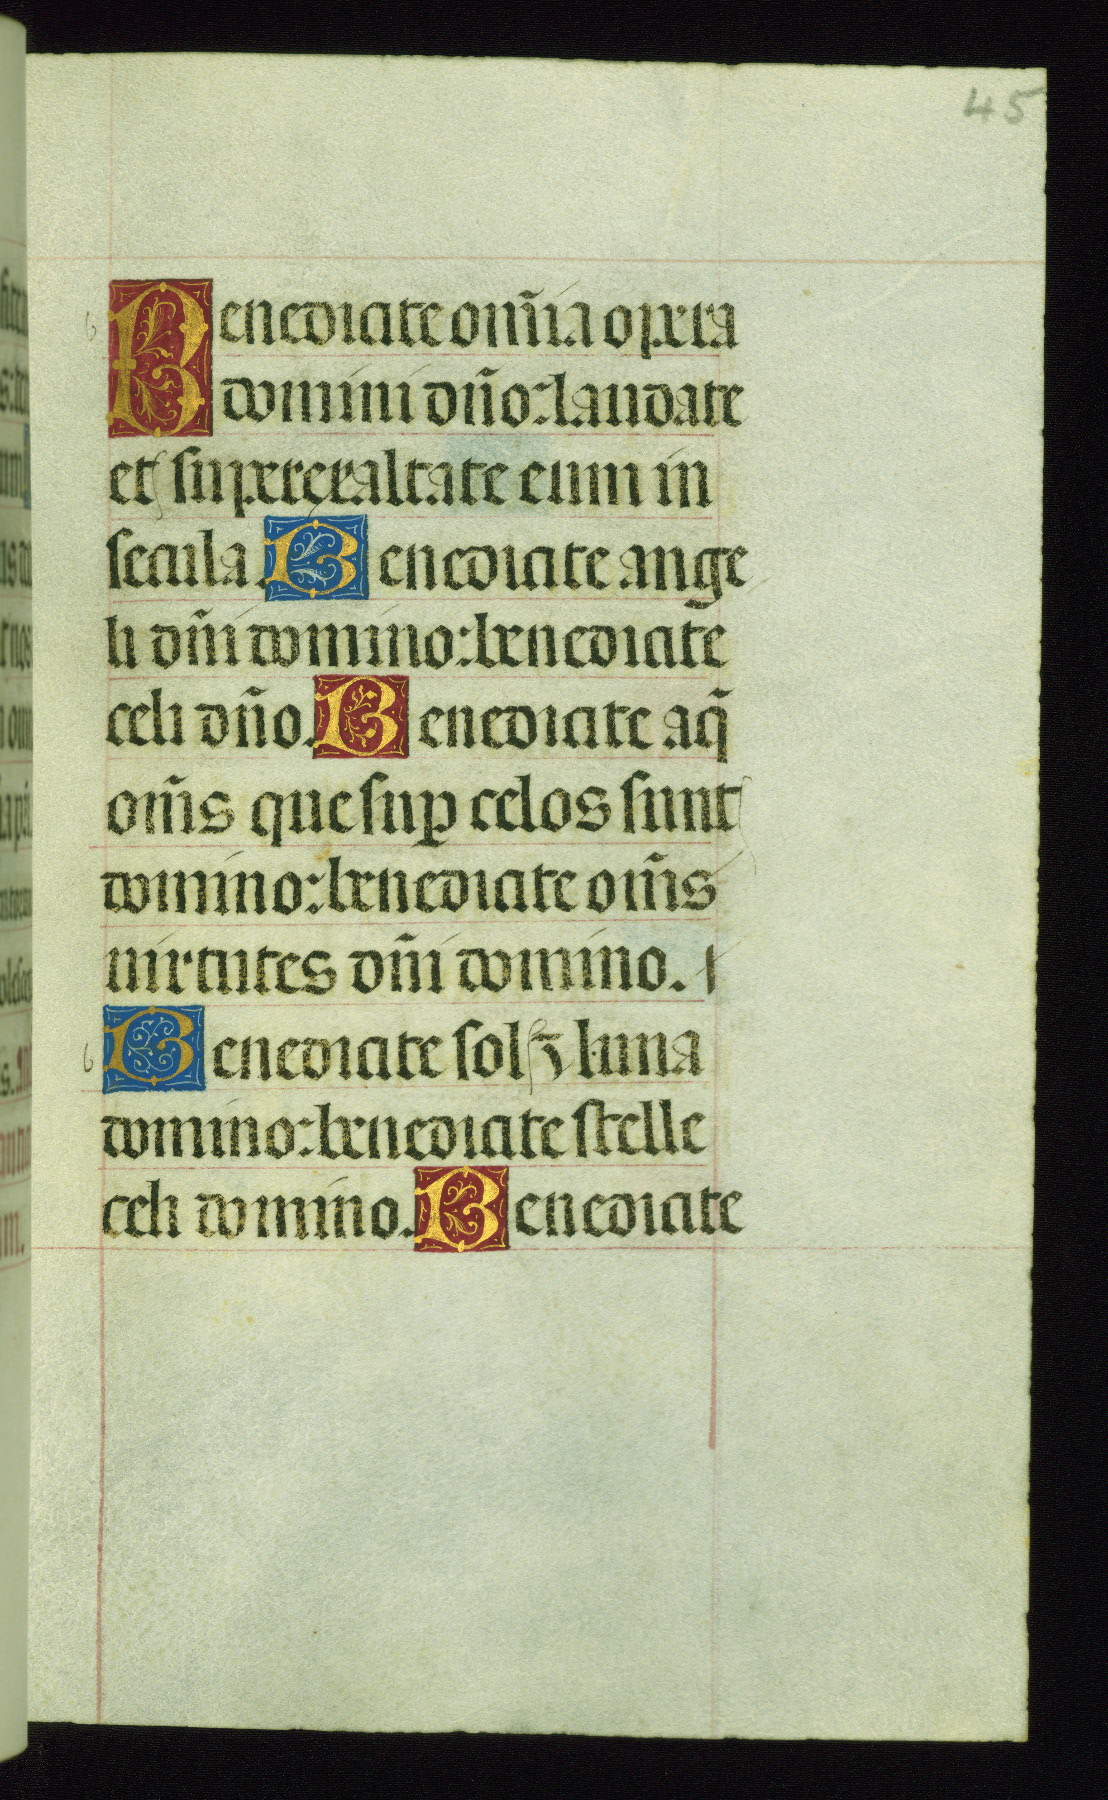 45
Benedicite om̄ia opera
domini dn̄o: laudate
et superexaltate eum in
secula. Benedicite ange
li dn̄i domino: benedicite
celi dn̄o. Benedicite aq̄
om̄s que suꝑ celos sunt
domino: benedicite om̄s
uirtutes dn̄i domino.
Benedicite sol ⁊ luna
domino: benedicite stelle
celi domino. Benedicite